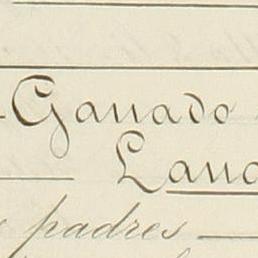 Ganado
Lana
padres